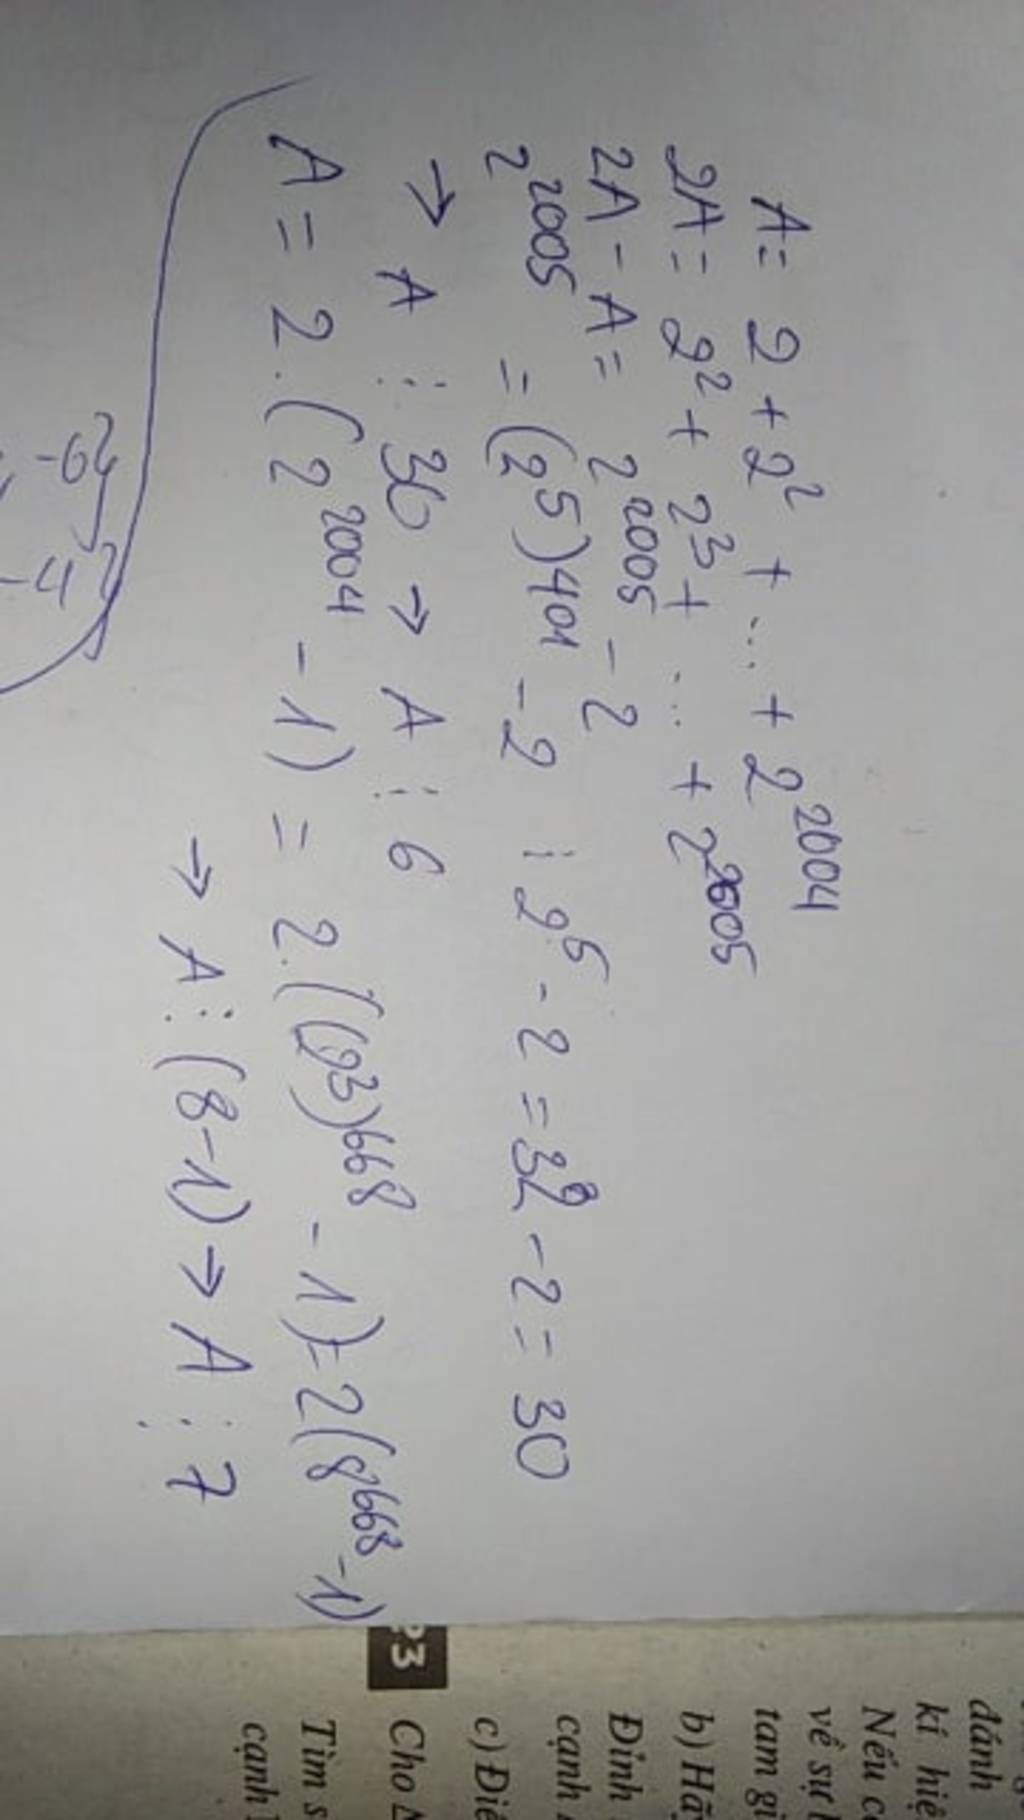 A = 2 + 2² + ... + 2²⁰⁰⁴
2A = 2² + 2³ + ... + 2²⁰⁰⁵
2A - A = 2²⁰⁰⁵ - 2
2²⁰⁰⁵ = (2⁵)⁴⁰¹ - 2 ⋮ 2⁵ - 2 = 32 - 2 = 30
→ A ⋮ 30 → A ⋮ 6
A = 2.(2²⁰⁰⁴ - 1) = 2.((2³)⁶⁶⁸ - 1) = 2(8⁶⁶⁸ - 1)
→ A ⋮ (8-1) → A ⋮ 7
đánh
kí hiệ
Nếu c
về sự
tam gi
b) Hã
Đinh
cạnh
c) Điể
23 Cho
Tìm s
cạnh